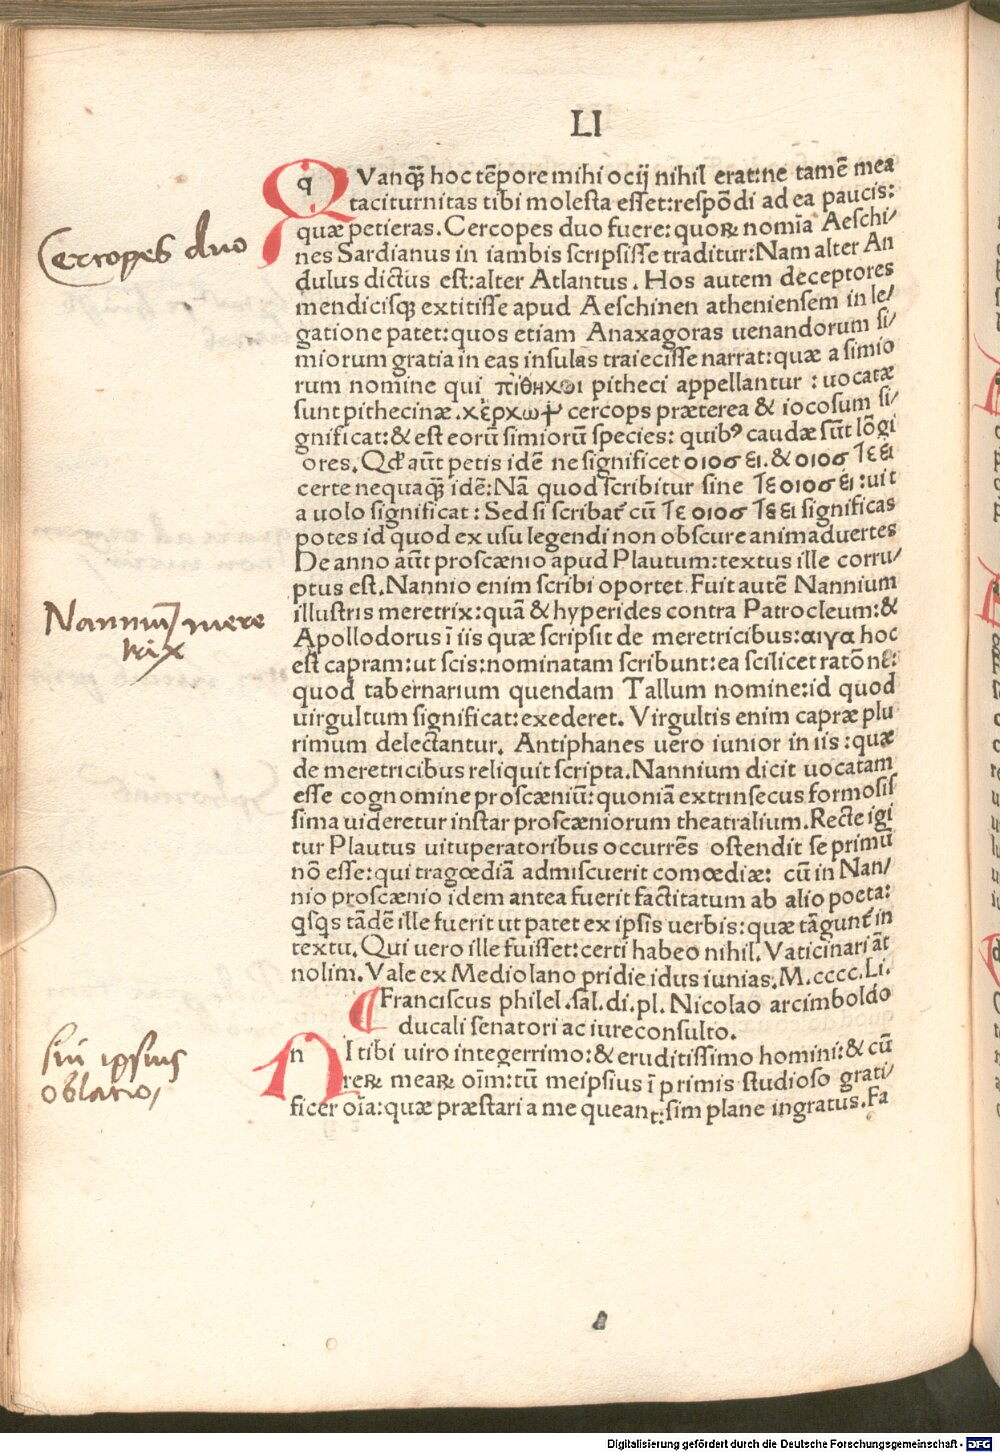 LI
QVanq̃ hoc tēpore mihi ocij nihil erat:ne tamē mea
taciturnitas tibi molesta esset:respōdi ad ea paucis:
quæ petieras. Cercopes duo fuere: quoꝝ nomīa Aeschi/
nes Sardianus in iambis scripsisse traditur: Nam alter An
dulus dictus est:alter Atlantus. Hos autem deceptores
mendicisqꝫ extitisse apud Aeschinen atheniensem in le/
gatione patet:quos etiam Anaxagoras uenandorum si/
miorum gratia in eas insulas traiecisse narrat:quæ a simio
rum nomine qui πίθηκοι pitheci appellantur : uocatæ
sunt pithecinæ. κέρκωψ cercops præterea & iocosum si/
gnificat:& est eorū simiorū species: quibꝰ caudæ sūt lōgi
ores. Qđ aūt petis idē ne significet οιοσ ει. & οιοσ τε ει
certe nequaq̃ idē: Nā quod scribitur sine τε οιοσ ει : uit
a uolo significat : Sed si scribat̃ cū τε οιοσ τε ει significas
potes id quod ex usu legendi non obscure animaduertes
De anno aūt proscænio apud Plautum: textus ille corru/
ptus est. Nannio enim scribi oportet Fuit autē Nannium
illustris meretrix: quā & hyperides contra Patrocleum:&
Apollodorus ī iis quæ scripsit de meretricibus: αιγα hoc
est capram: ut scis:nominatam scribunt: ea scilicet ratōne:
quod tabernarium quendam Tallum nomine:id quod
uirgultum significat: exederet. Virgultis enim capræ plu
rimum delectantur. Antiphanes uero iunior in iis : quæ
de meretricibus reliquit scripta. Nannium dicit uocatam
esse cognomine proscæniū: quoniā extrinsecus formosis
sima uideretur instar proscæniorum theatralium. Recte igi
tur Plautus uituperatoribus occurrēs ostendit se primū
nō esse: qui tragœdiā admiscuerit comœdiæ: cū in Nan/
nio proscænio idem antea fuerit factitatum ab alio poeta:
qsqs tādē ille fuerit ut patet ex ipsis uerbis: quæ tāgunt̃ in
textu. Qui uero ille fuisset: certi habeo nihil. Vaticinari āt
nolim. Vale ex Mediolano pridie idus iunias. M.cccc.Li.
Franciscus philel. sal. di. pl. Nicolao arcimboldo
ducali senatori ac iureconsulto.
NI tibi uiro integerrimo: & eruditissimo homini: & cū
reꝝ meaꝝ oīm: tū meipsius ī primis studioso grati/
ficer oīa: quæ præstari a me queant: sim plane ingratus. Fa
Cercopes duo
Nannium mere
trix
sui ipsius
oblatio,
Digitalisierung gefördert durch die Deutsche Forschungsgemeinschaft - DFG